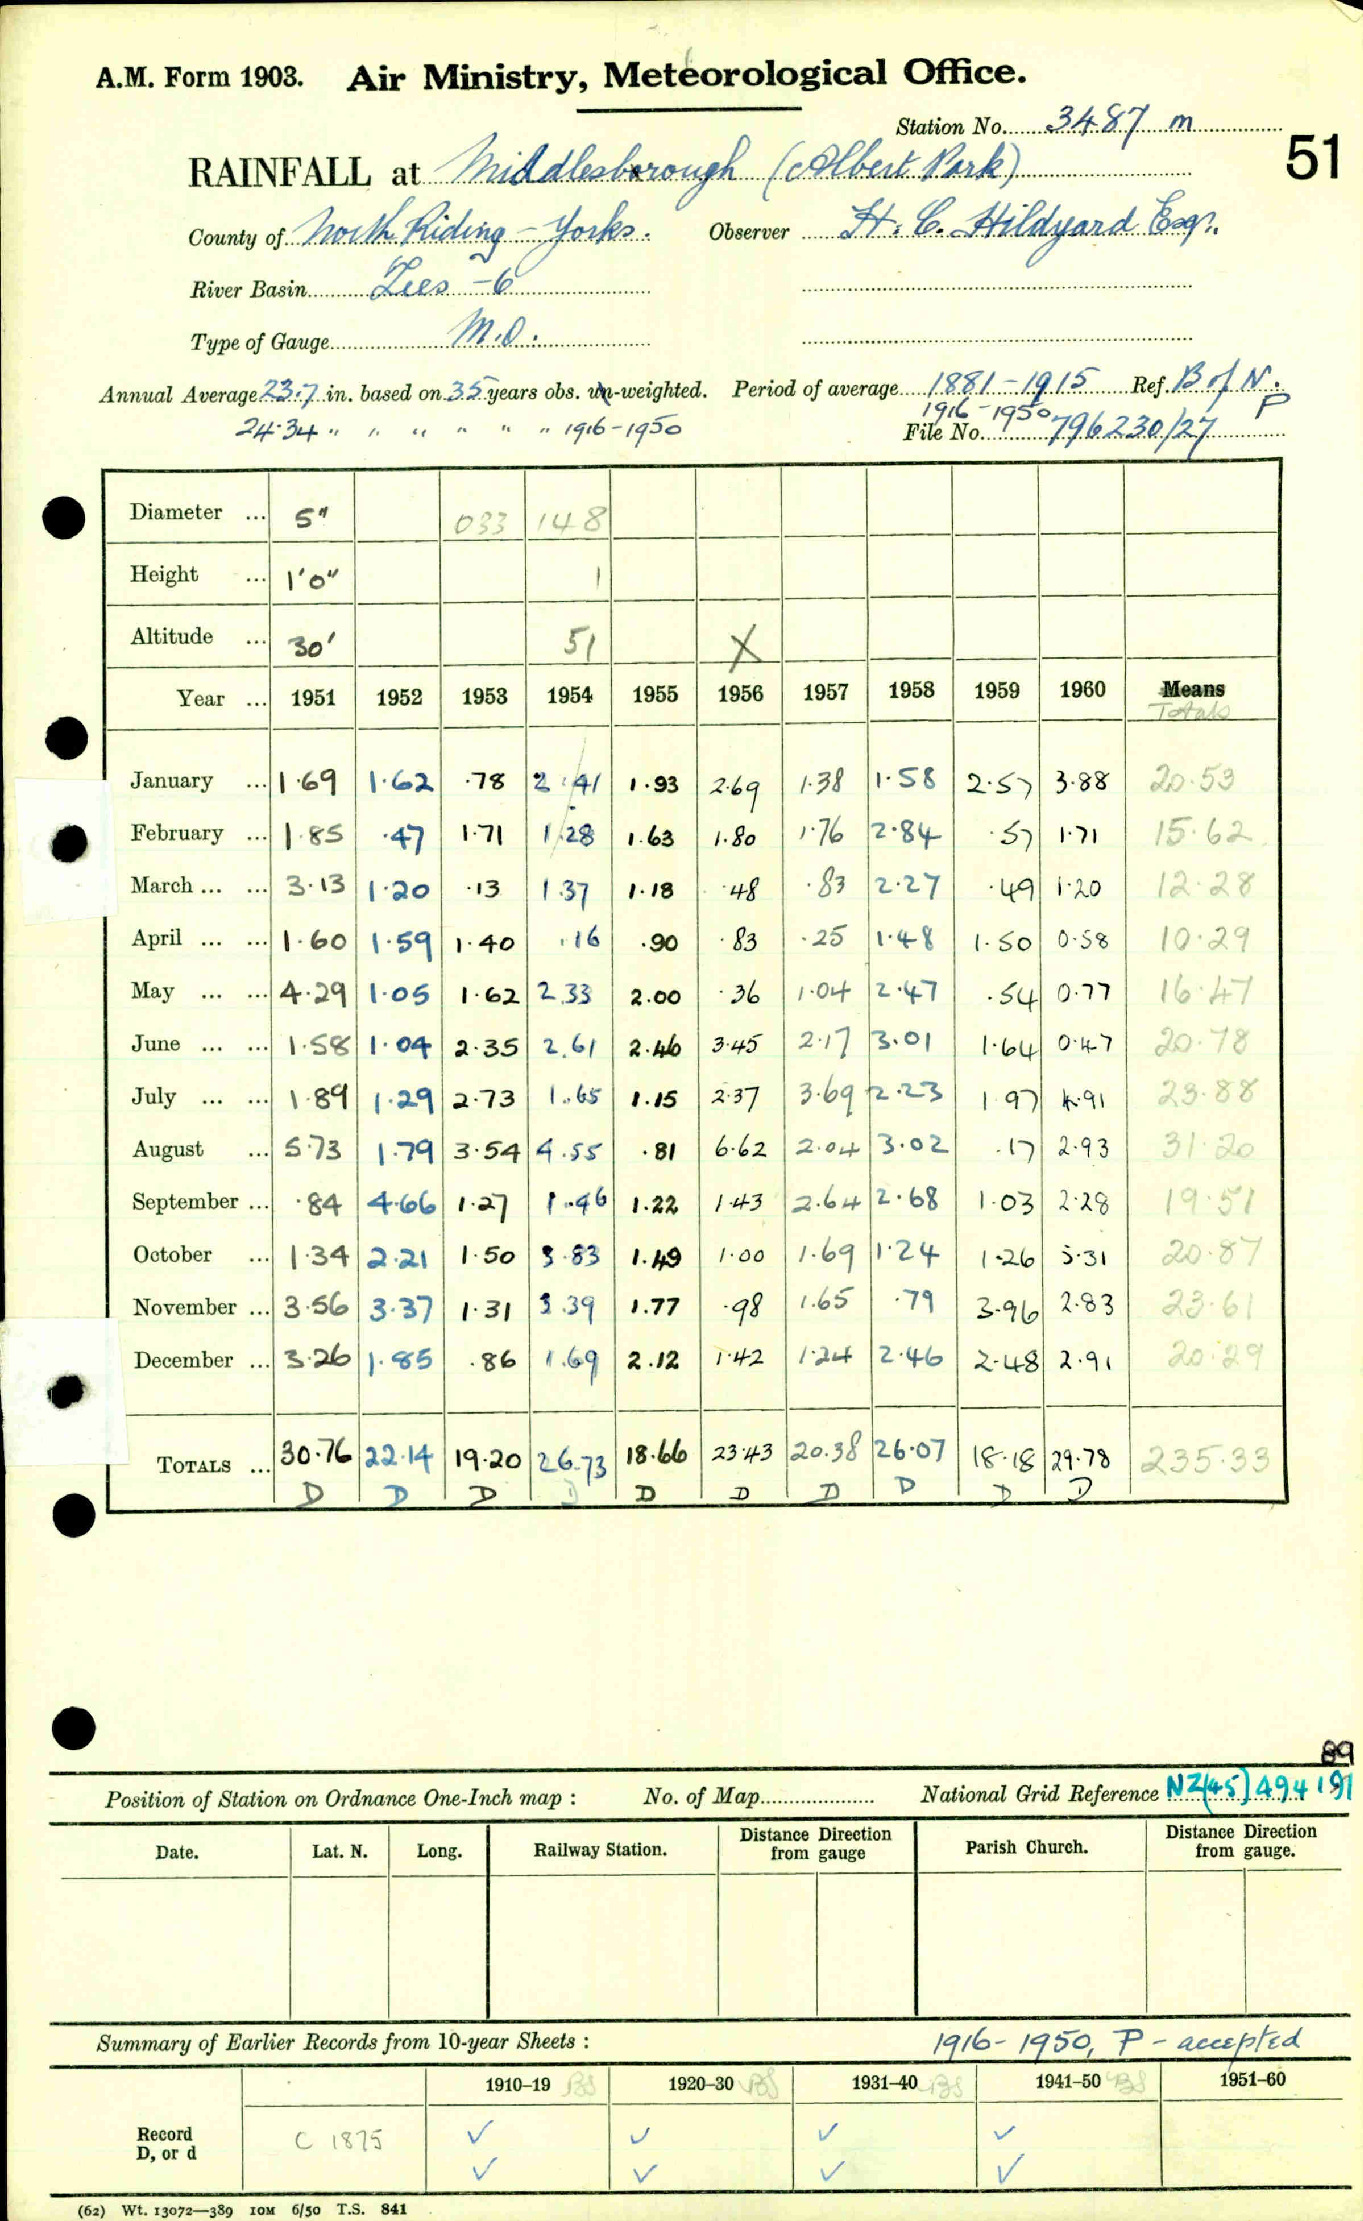 A.M. Form 1903. Air Ministry, Meteorological Office.
Station No. 3487 m
51
RAINFALL at Middlesbrough (Albert Park)
County of North Riding - Yorks. Observer H. C. Hildyard Esqr.
River Basin Tees - 6
Type of Gauge M.O.
Annual Average 23.7 in. based on 35 years obs. un-weighted. Period of average 1881-1915 Ref. B of N. P
1916-1950
24.34 " " " " " " 1916-1950 File No. 796230/27
Diameter ... 5" 033 148
Height ... 1'0" 1
Altitude ... 30' 51 X
Year ... 1951 1952 1953 1954 1955 1956 1957 1958 1959 1960 Means
Totals
January ... 1.69 1.62 .78 2.41 1.93 2.69 1.38 1.58 2.57 3.88 20.53
February ... 1.85 .47 1.71 1.28 1.63 1.80 1.76 2.84 .57 1.71 15.62
March ... ... 3.13 1.20 .13 1.37 1.18 .48 .83 2.27 .49 1.20 12.28
April ... ... 1.60 1.59 1.40 .16 .90 .83 .25 1.48 1.50 0.58 10.29
May ... ... 4.29 1.05 1.62 2.33 2.00 .36 1.04 2.47 .54 0.77 16.47
June ... ... 1.58 1.04 2.35 2.61 2.46 3.45 2.17 3.01 1.64 0.47 20.78
July ... ... 1.89 1.29 2.73 1.65 1.15 2.37 3.69 2.23 1.97 4.91 23.88
August ... 5.73 1.79 3.54 4.55 .81 6.62 2.04 3.02 .17 2.93 31.20
September ... .84 4.66 1.27 1.46 1.22 1.43 2.64 2.68 1.03 2.28 19.51
October ... 1.34 2.21 1.50 3.83 1.49 1.00 1.69 1.24 1.26 5.31 20.87
November ... 3.56 3.37 1.31 3.39 1.77 .98 1.65 .79 3.96 2.83 23.61
December ... 3.26 1.85 .86 1.69 2.12 1.42 1.24 2.46 2.48 2.91 20.29
TOTALS ... 30.76 22.14 19.20 26.73 18.66 23.43 20.38 26.07 18.18 29.78 235.33
D D D D D D D D D D
89
Position of Station on Ordnance One-Inch map : No. of Map National Grid Reference NZ(45)494191
Date. Lat. N. Long. Railway Station. Distance Direction from gauge Parish Church. Distance Direction from gauge.
Summary of Earlier Records from 10-year Sheets : 1916-1950, P - accepted
1910-19 BS 1920-30 BS 1931-40 BS 1941-50 BS 1951-60
Record D, or d C 1875 ✓ ✓ ✓ ✓
✓ ✓ ✓ ✓
(62) Wt. 13072—389 10M 6/50 T.S. 841